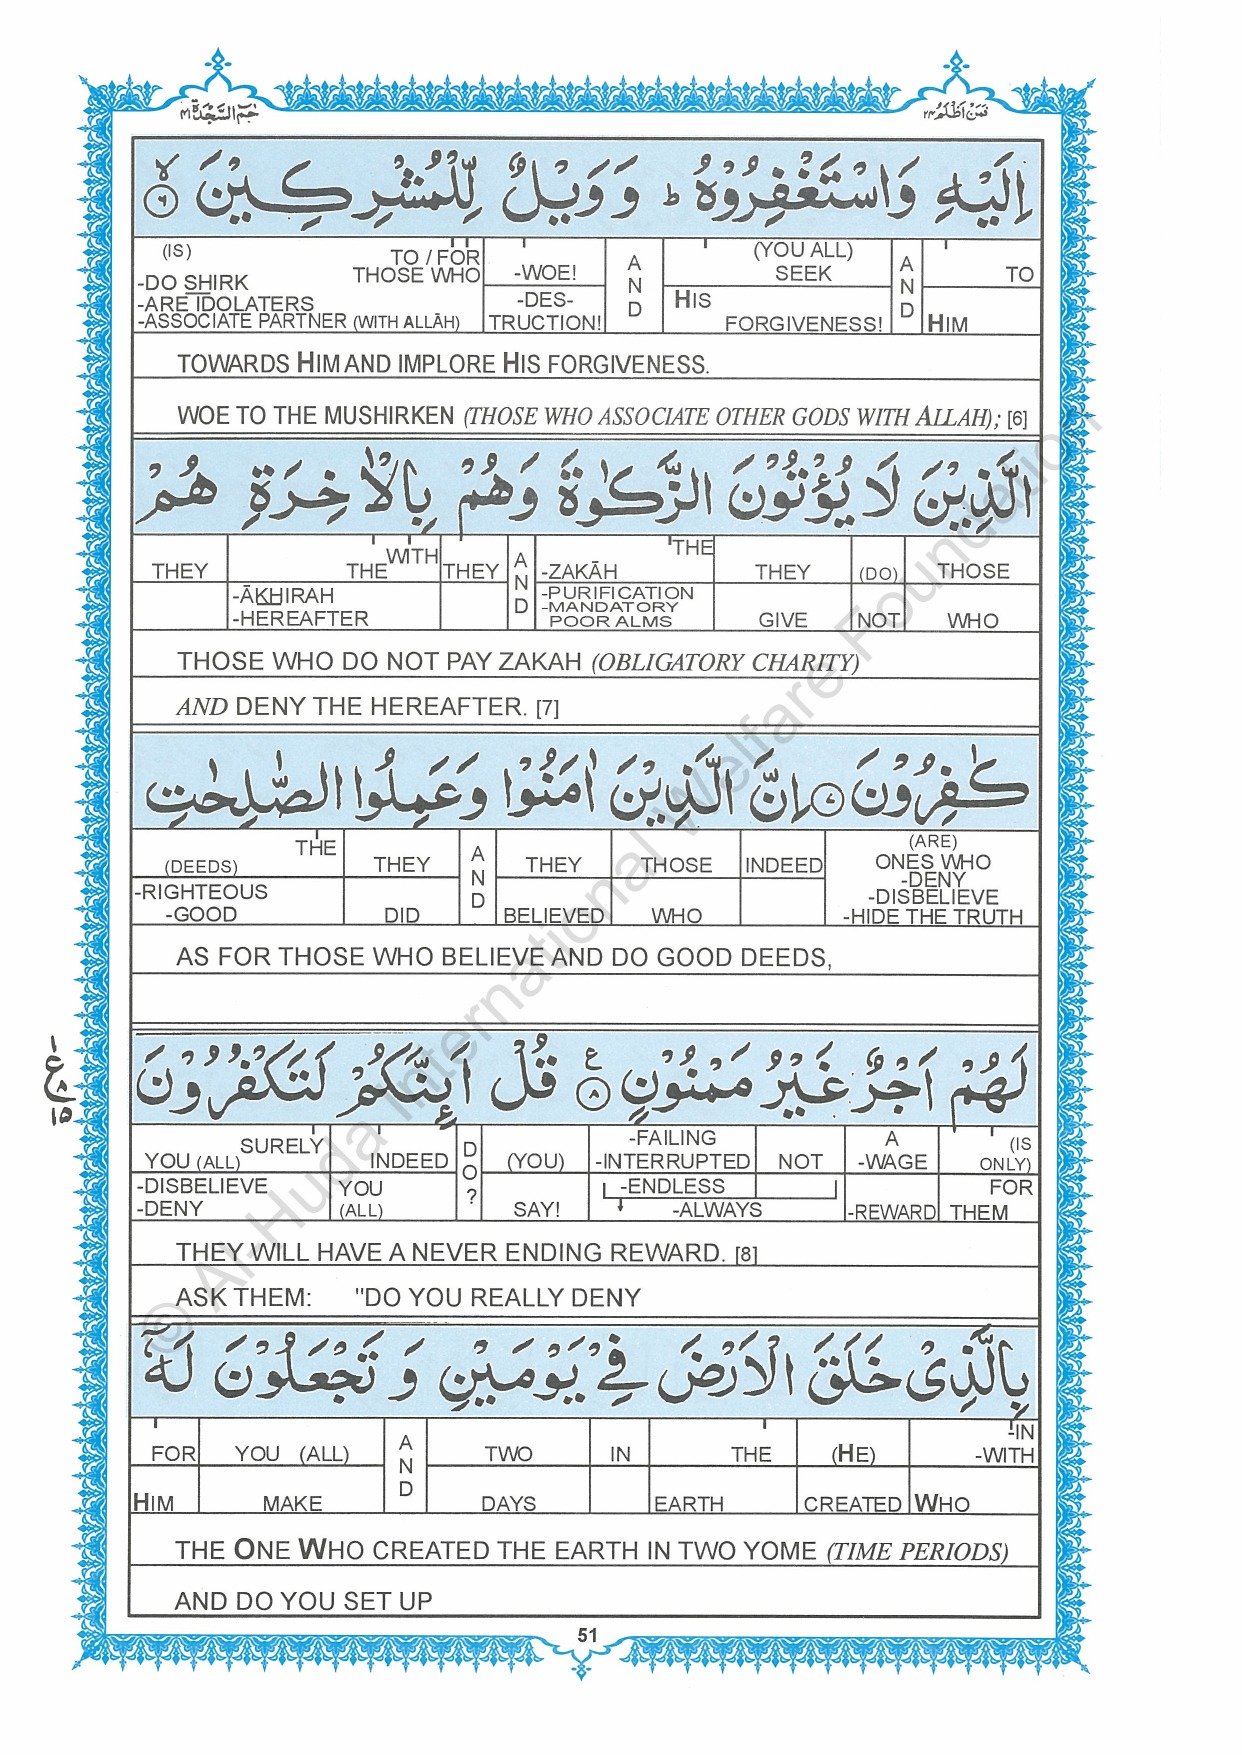 حٰمٓ السَّجْدَة ٤١
فَمَنْ اَظْلَمُ ٢٤
اِلَيْهِ وَاسْتَغْفِرُوْهُ ؕ وَ وَيْلٌ لِّلْمُشْرِكِيْنَ ۙ ٦
(IS) TO / FOR -WOE! AND (YOU ALL) AND TO
-DO SHIRK THOSE WHO SEEK
-ARE IDOLATERS -DES- HIS
-ASSOCIATE PARTNER (WITH ALLĀH) TRUCTION! FORGIVENESS! HIM
TOWARDS HIM AND IMPLORE HIS FORGIVENESS.
WOE TO THE MUSHIRKEN (THOSE WHO ASSOCIATE OTHER GODS WITH ALLAH); [6]
الَّذِيْنَ لَا يُؤْتُوْنَ الزَّكٰوةَ وَهُمْ بِالْاٰخِرَةِ هُمْ
WITH AND THE
THEY THE THEY -ZAKĀH THEY (DO) THOSE
-ĀKHIRAH -PURIFICATION
-HEREAFTER -MANDATORY
POOR ALMS GIVE NOT WHO
THOSE WHO DO NOT PAY ZAKAH (OBLIGATORY CHARITY)
AND DENY THE HEREAFTER. [7]
كٰفِرُوْنَ ٧ اِنَّ الَّذِيْنَ اٰمَنُوْا وَعَمِلُوا الصّٰلِحٰتِ
THE AND (ARE)
(DEEDS) THEY THEY THOSE INDEED ONES WHO
-RIGHTEOUS -DENY
-GOOD DID BELIEVED WHO -DISBELIEVE
-HIDE THE TRUTH
AS FOR THOSE WHO BELIEVE AND DO GOOD DEEDS,
لَهُمْ اَجْرٌ غَيْرُ مَمْنُوْنٍ ٨ ع قُلْ اَئِنَّكُمْ لَتَكْفُرُوْنَ
SURELY DO? -FAILING A (IS
YOU (ALL) INDEED (YOU) -INTERRUPTED NOT -WAGE ONLY)
-DISBELIEVE YOU -ENDLESS FOR
-DENY (ALL) SAY! -ALWAYS -REWARD THEM
THEY WILL HAVE A NEVER ENDING REWARD. [8]
ASK THEM: "DO YOU REALLY DENY
بِالَّذِىْ خَلَقَ الْاَرْضَ فِىْ يَوْمَيْنِ وَ تَجْعَلُوْنَ لَهٗٓ
AND -IN
FOR YOU (ALL) TWO IN THE (HE) -WITH
HIM MAKE DAYS EARTH CREATED WHO
THE ONE WHO CREATED THE EARTH IN TWO YOME (TIME PERIODS)
AND DO YOU SET UP
51
© Al-Huda International Welfare Foundation